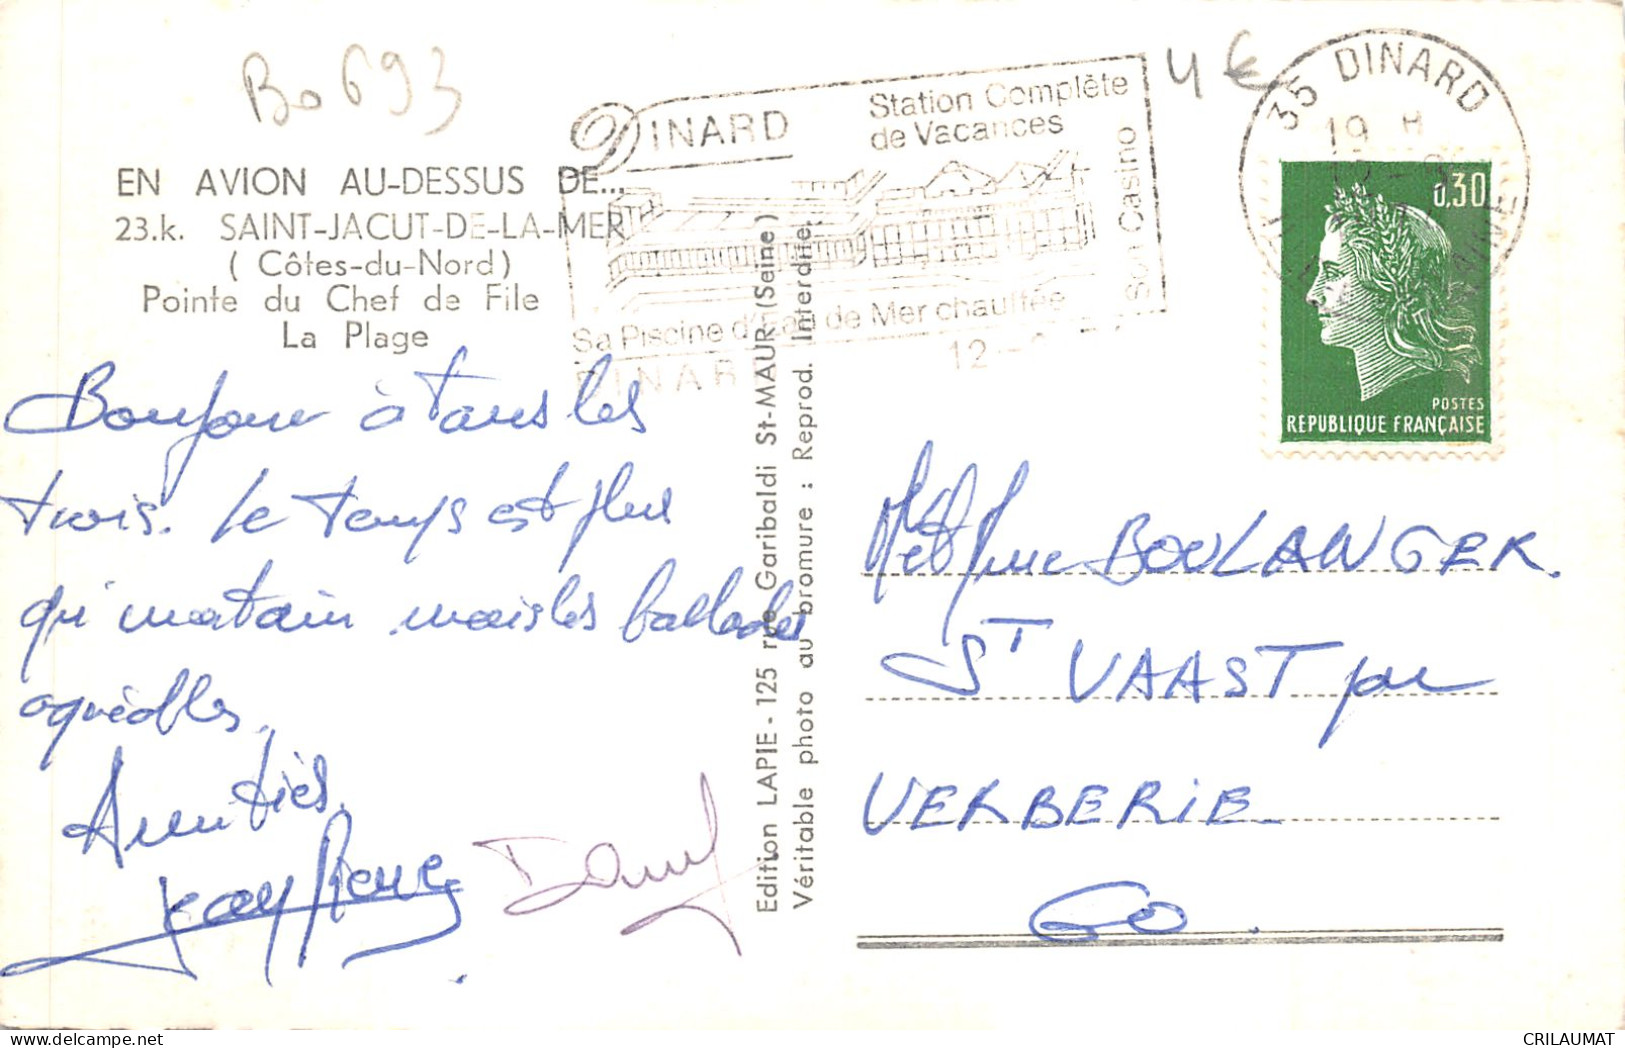 Bo693
4€
EN AVION AU-DESSUS DE...
23.k. SAINT-JACUT-DE-LA-MER
( Côtes-du-Nord )
Pointe du Chef de File
La Plage
DINARD
Station Complète
de Vacances
Son Casino
Sa Piscine d'Eau de Mer chauffée
DINARD
12
35 DINARD
19 H
0,30
POSTES
REPUBLIQUE FRANÇAISE
Bonjour à tous les
trois. Le temps est plus
qu'incertain mais les ballades
agréables.
Amitiés.
Edition LAPIE - 125 rue Garibaldi St-MAUR (Seine)
Véritable photo au bromure : Reprod. Interdite.
Mr et Mme BOULANGER.
ST VAAST par
VERBERIE
60.
CRILAUMAT